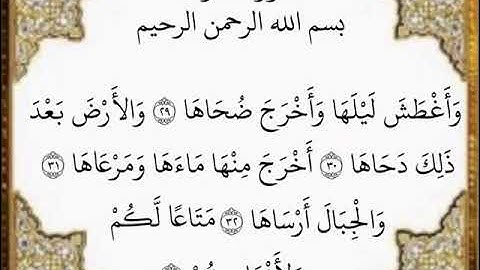 بسم الله الرحمن الرحيم
وَأَغْطَشَ لَيْلَهَا وَأَخْرَجَ ضُحَاهَا ﴿٢٩﴾ وَالأَرْضَ بَعْدَ
ذَلِكَ دَحَاهَا ﴿٣٠﴾ أَخْرَجَ مِنْهَا مَاءَهَا وَمَرْعَاهَا ﴿٣١﴾
وَالْجِبَالَ أَرْسَاهَا ﴿٣٢﴾ مَتَاعًا لَّكُمْ